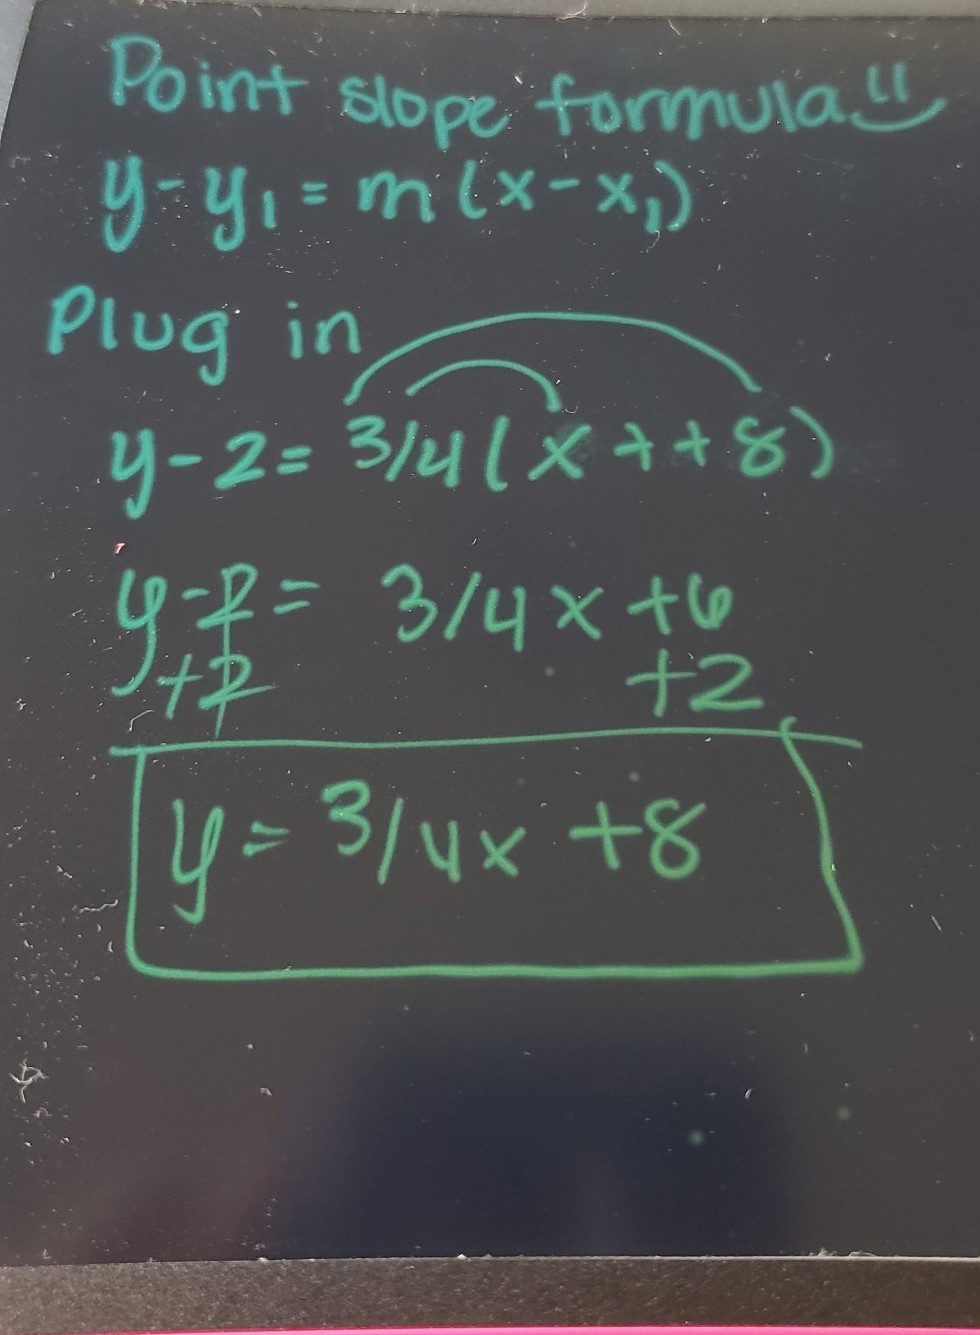 Point slope formula!!
y-y₁=m(x-x₁)
Plug in
y-2=3/4(x++8)
y-2= 3/4x+6
+2 +2
y=3/4x+8